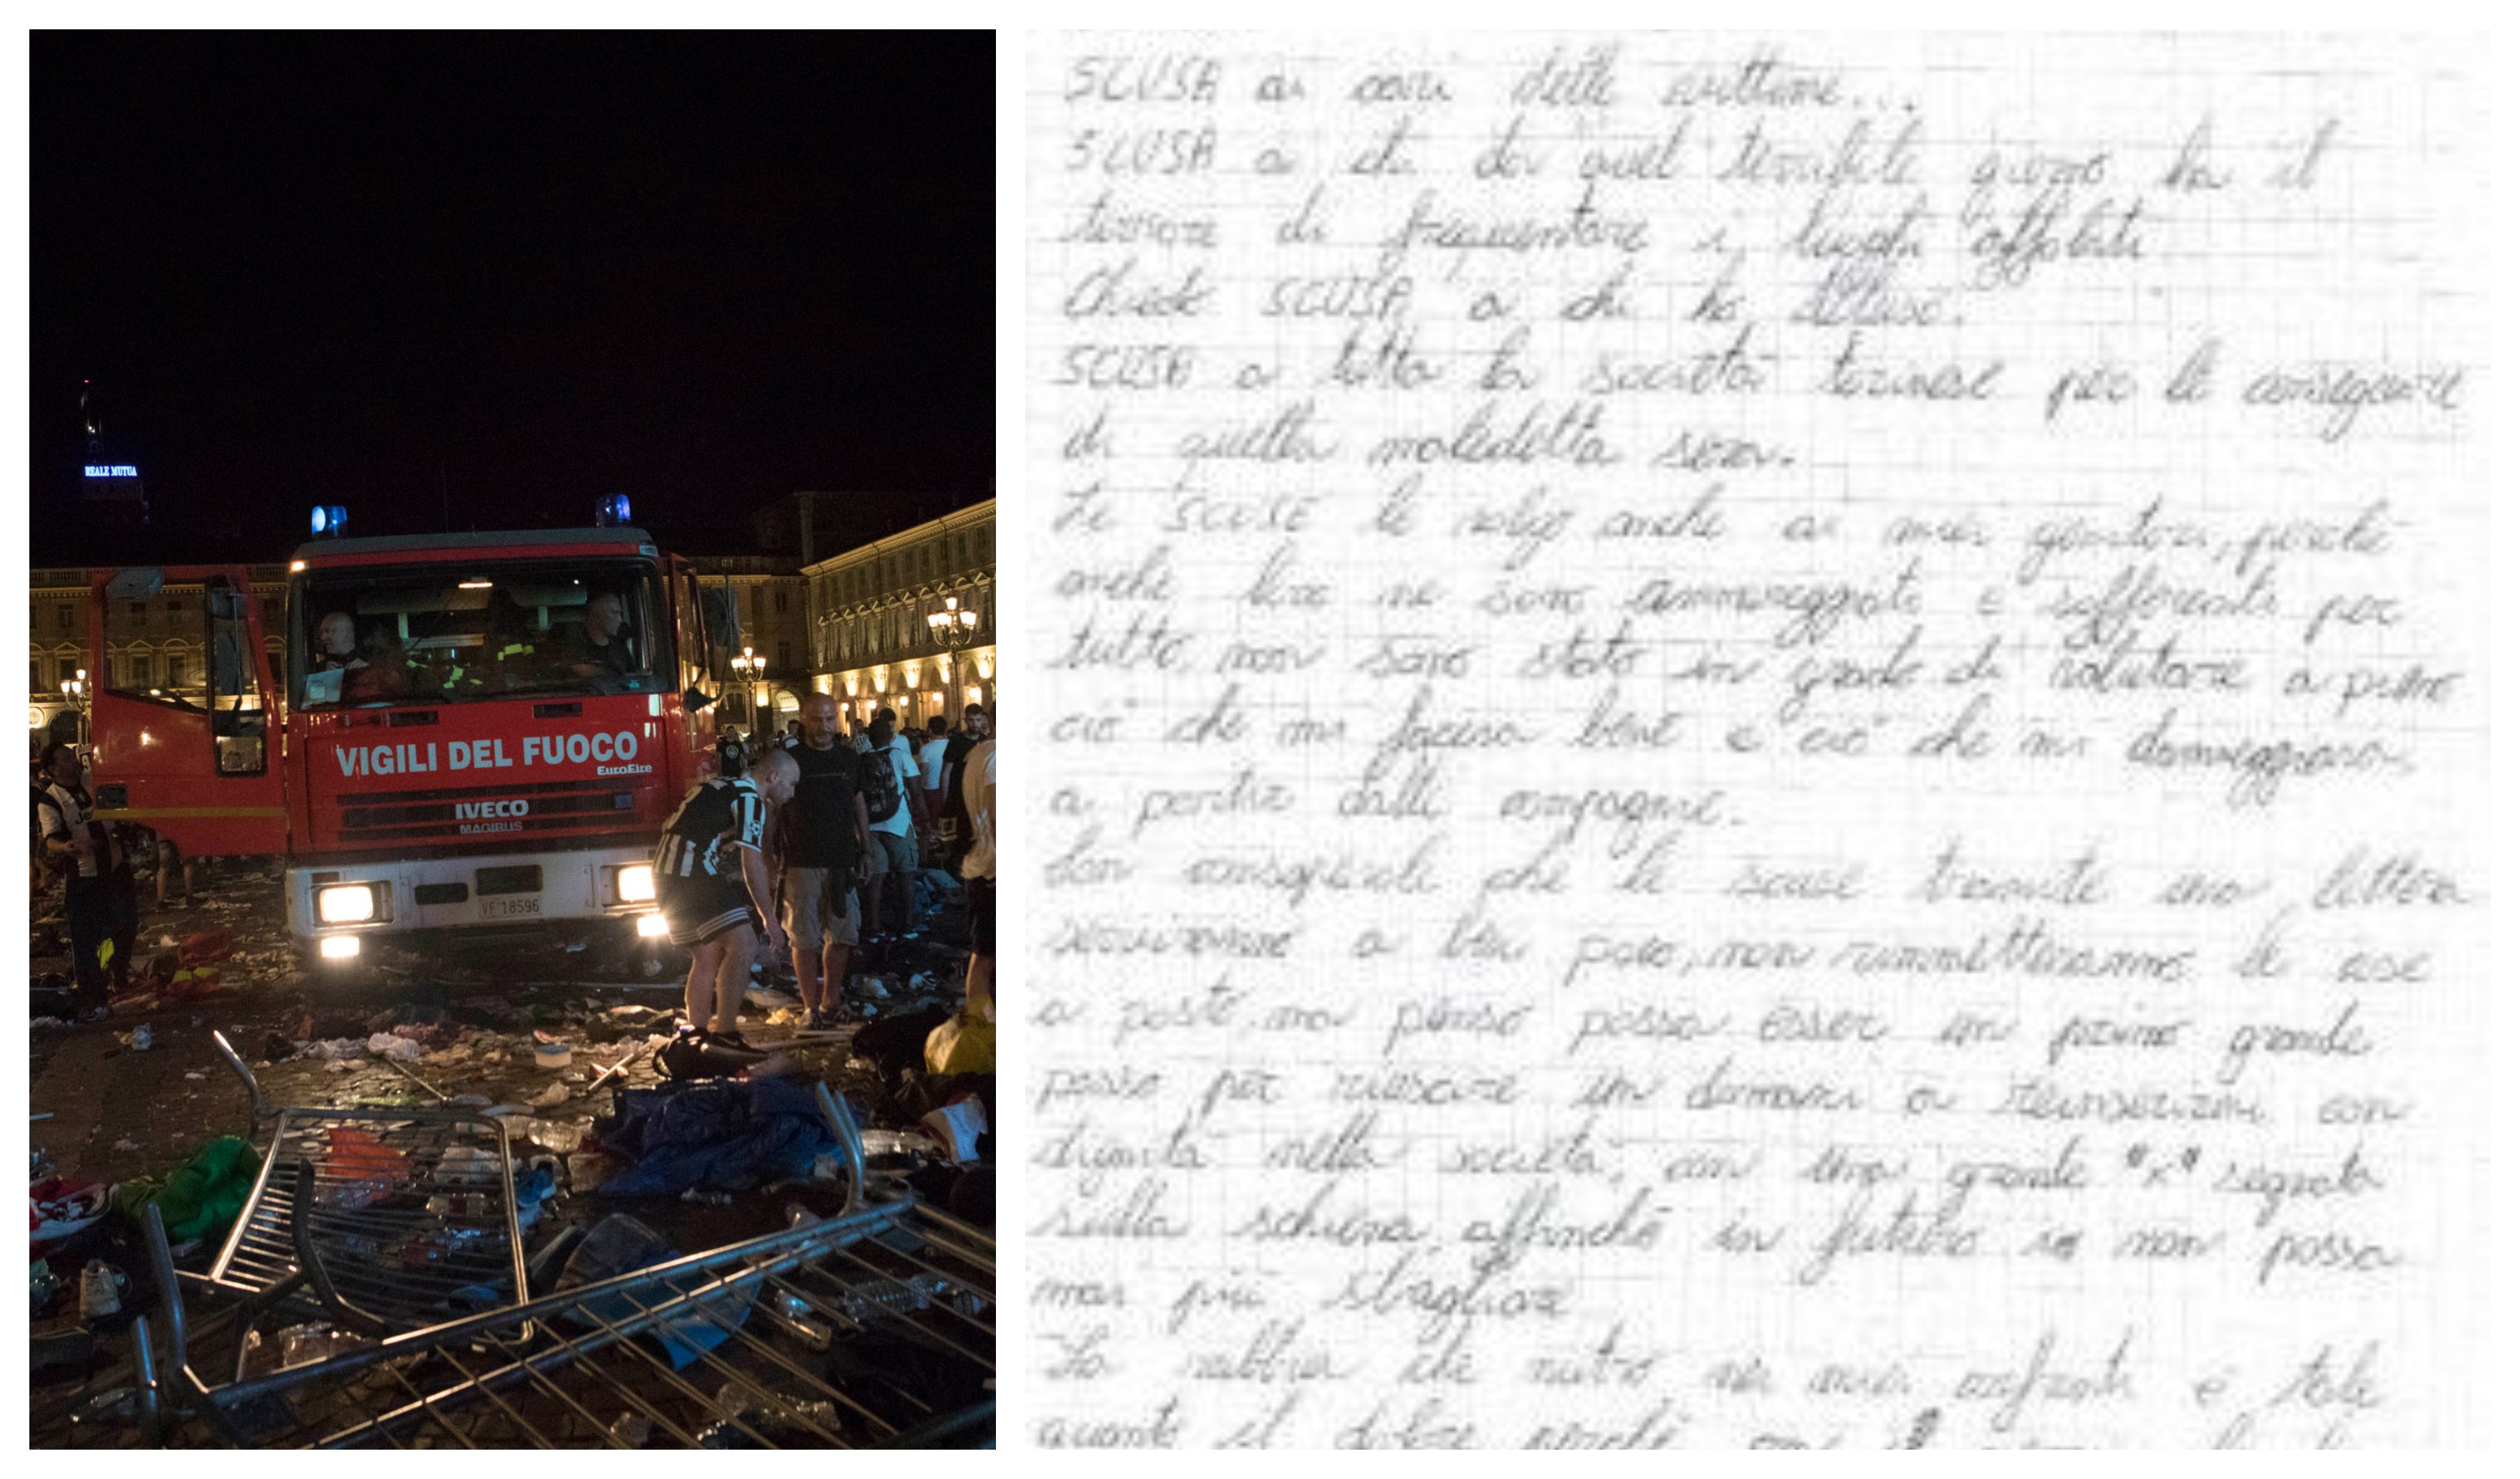 REALE MUTUA
VIGILI DEL FUOCO
EuroFire
IVECO
MAGIRUS
VF 18596
SCUSA ai cari delle vittime...
SCUSA a chi da quel terribile giorno ha il
terrore di frequentare i luoghi affollati
Chiedo SCUSA a chi ho deluso.
SCUSA a tutta la società torinese per le conseguenze
di quella maledetta sera.
Le SCUSE le volgo anche ai miei genitori, perché
anche loro ne sono amareggiati e sofferenti per
tutto non sono stato in grado di valutare a pieno
ciò che mi faceva bene e ciò che mi danneggiava,
a partire dalle compagnie.
Son consapevole che le scuse tramite una lettera
serviranno a ben poco, non rimetteranno le cose
a posto, ma penso possa esser un primo grande
passo per riuscire un domani a reinserirmi con
dignità nella società, con una grande "x" segnata
sulla schiena, affinché in futuro io non possa
mai più sbagliare
La rabbia che nutro nei miei confronti è tale
quanto il dolore perché